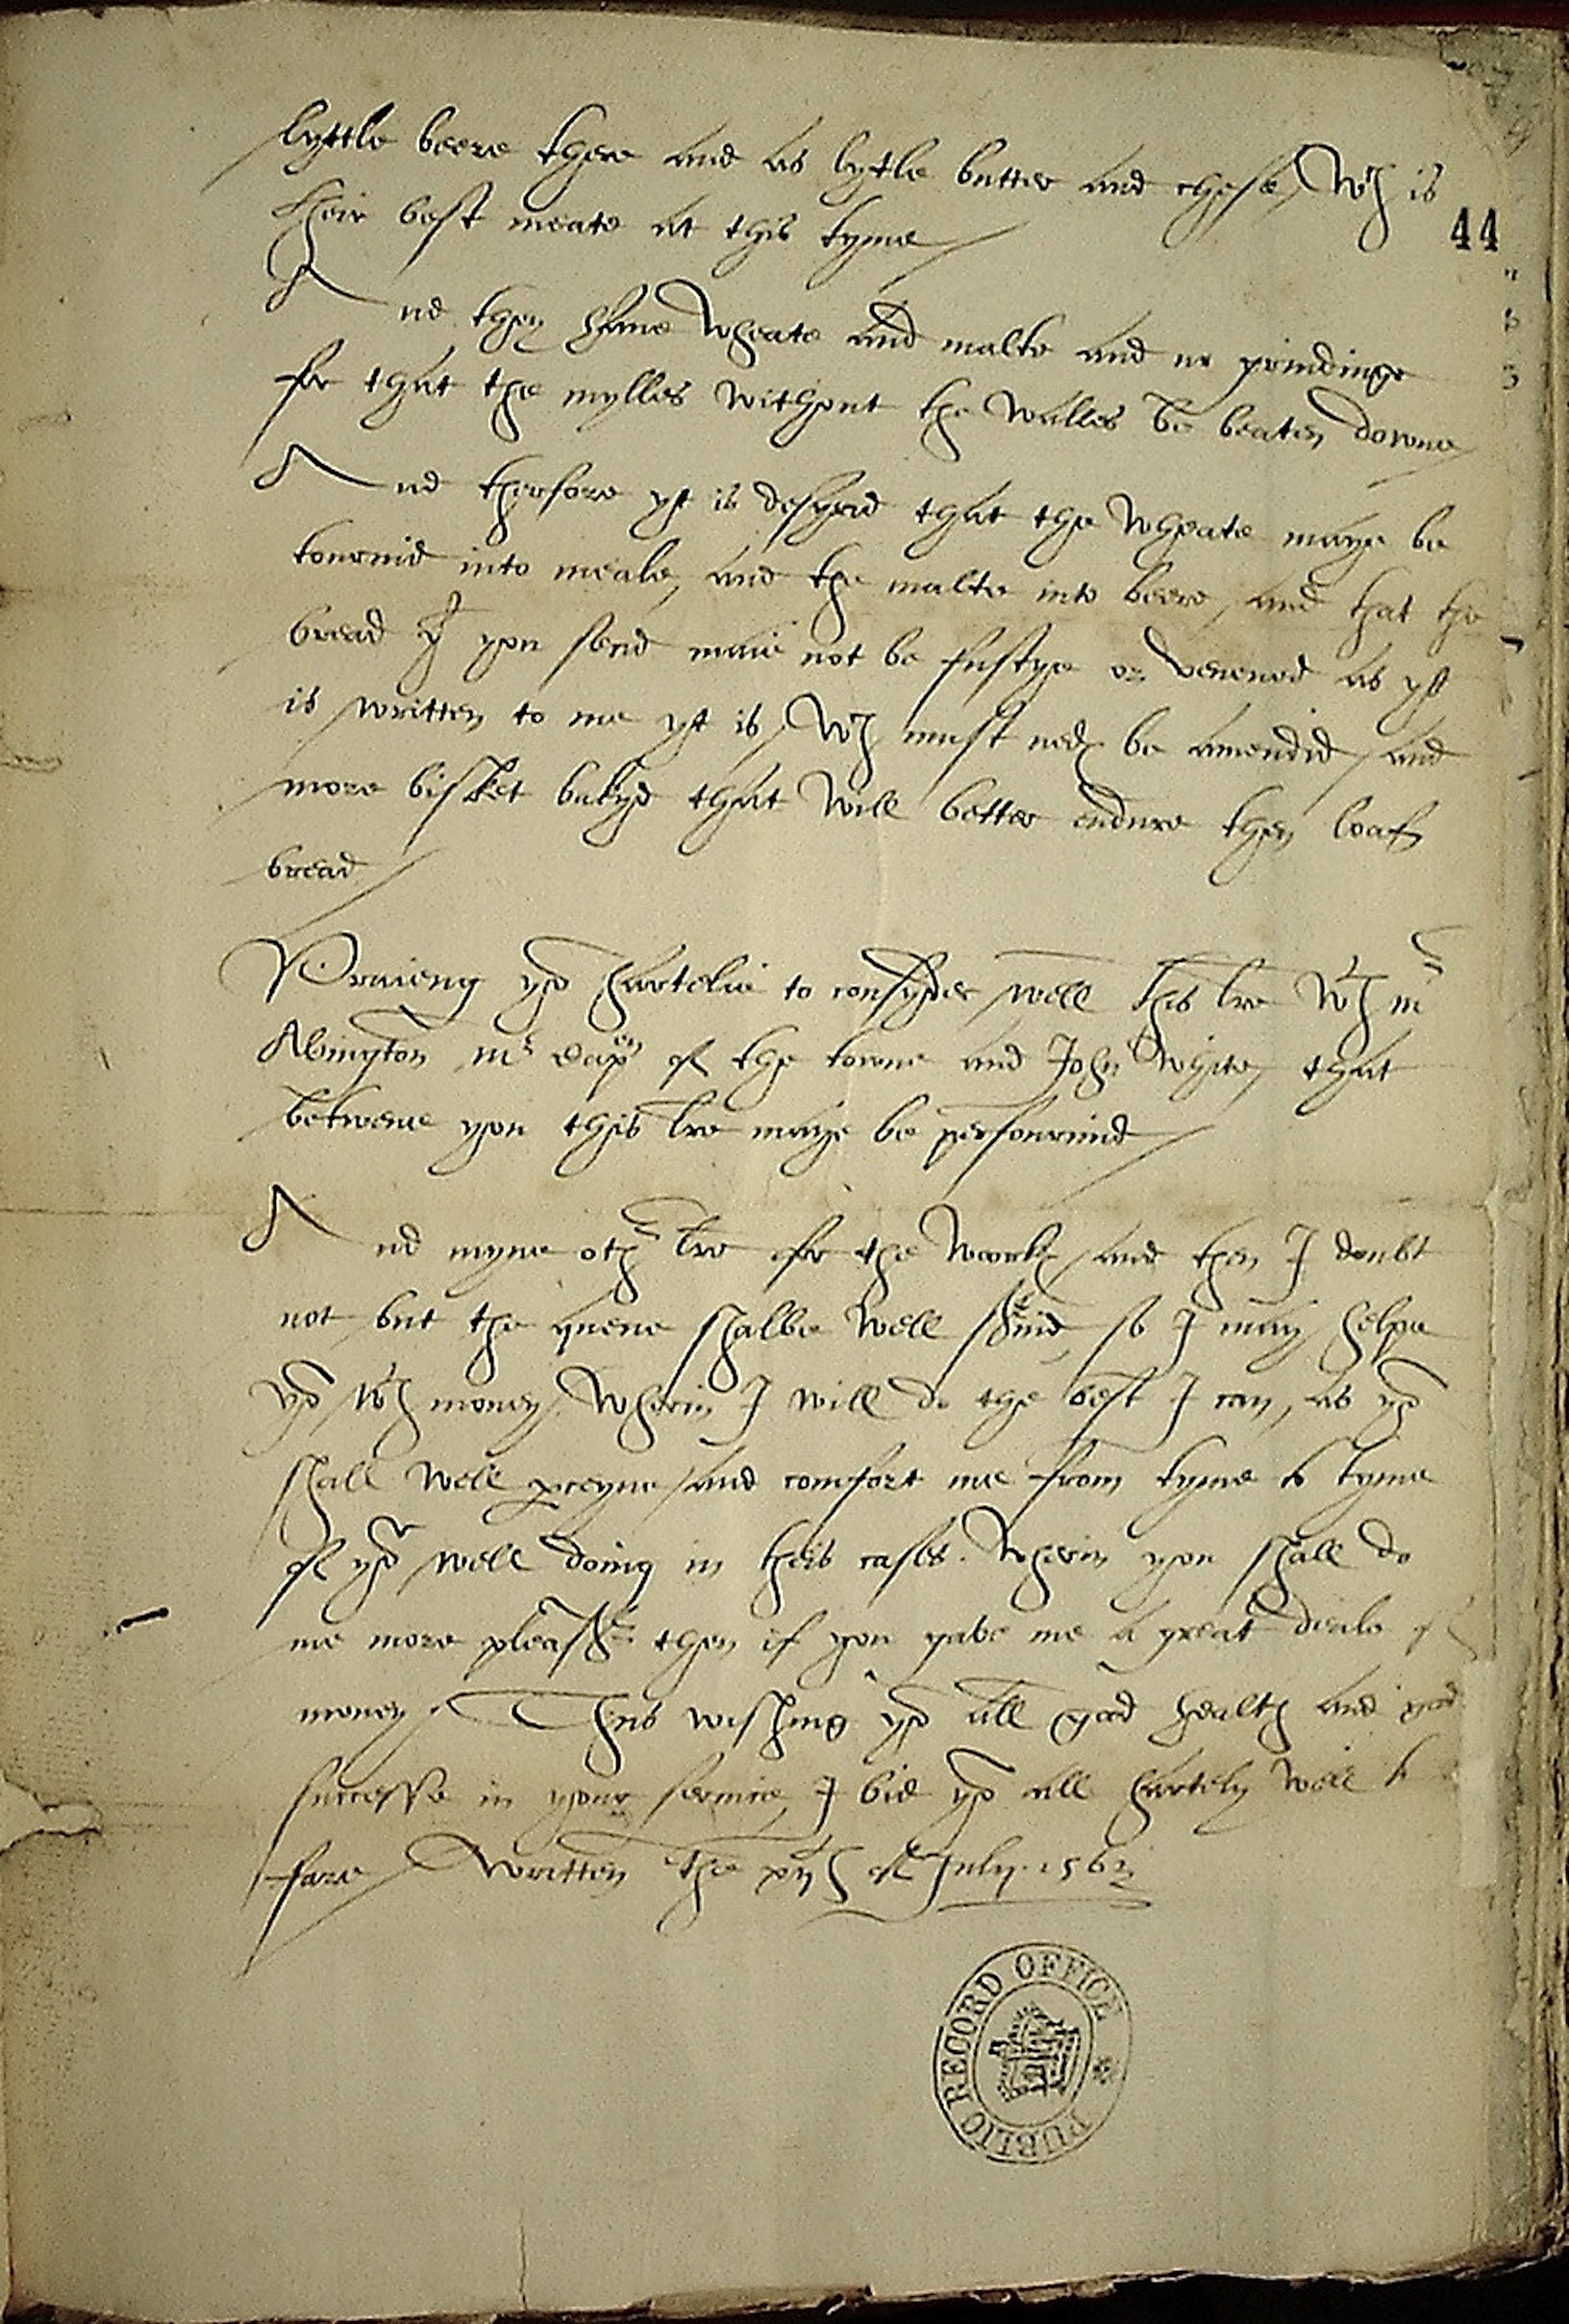 lyttle beere there and as lytle butter and chese, wch is
their best meate at this tyme
44
And they have wheate and malte and no grindinge
for that the mylles without the walles be beaten downe
And therfore yt is desyrid that the wheate maye be
tournid into meale, and the malte into beere, and that the
bread yt you send maie not be fustye or venewed as yt
is written to me yt is, wch must nedes be amendid, and
more bisket bakyd that will better endure then loaf
bread
Praieng you hartelie to consyder well this lre wth mr
Abington mr the towne and John White, that
betwene you this lre maye be perfourmid
And myne other lre for the workes, and then I doubt
not but the quene shalbe well servid, so I may helpe
you wth money, wherin I will do the best I can, as you
shall well perceyve, and comfort me from tyme to tyme
of yor well doing in theis cases. Wherin you shall do
me more pleasure then if you gave me a great deale of
money. Thus wishing you all good health and good
successe in your service, I bid you all hartely well to
fare Written the of July. 156
PUBLIC RECORD OFFICE